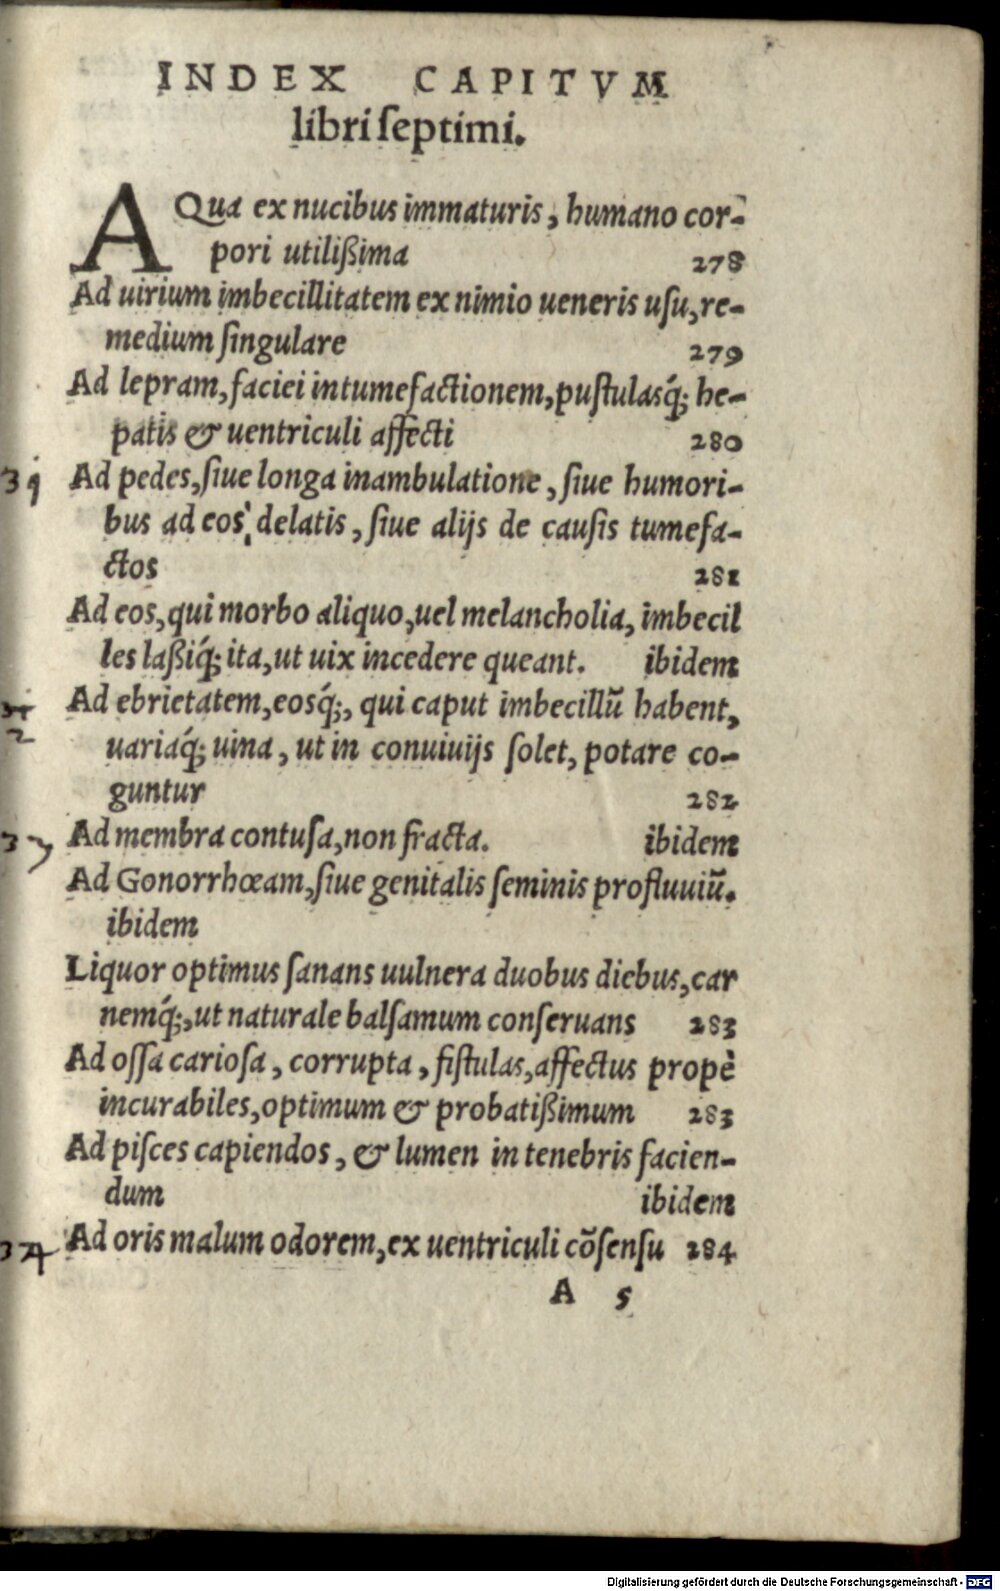 INDEX CAPITVM
libri ſeptimi.
AQua ex nucibus immaturis, humano cor-
pori utilißima 278
Ad uirium imbecillitatem ex nimio ueneris uſu, re-
medium ſingulare 279
Ad lepram, faciei intumefactionem, puſtulasq́; he-
patis & uentriculi affecti 280
Ad pedes, ſiue longa inambulatione, ſiue humori-
bus ad eos delatis, ſiue alijs de cauſis tumefa-
ctos 281
Ad eos, qui morbo aliquo, uel melancholia, imbecil
les laßiq́; ita, ut uix incedere queant. ibidem
Ad ebrietatem, eosq́;, qui caput imbecillũ habent,
uariaq́; uina, ut in conuiuijs ſolet, potare co-
guntur 282
37 Ad membra contuſa, non fracta. ibidem
Ad Gonorrhœam, ſiue genitalis ſeminis profluuiũ.
ibidem
Liquor optimus ſanans uulnera duobus diebus, car
nemq́;, ut naturale balſamum conſeruans 283
Ad oſſa carioſa, corrupta, fiſtulas, affectus propè
incurabiles, optimum & probatißimum 283
Ad piſces capiendos, & lumen in tenebris facien-
dum ibidem
Ad oris malum odorem, ex uentriculi cõſenſu 284
A 5
Digitalisierung gefördert durch die Deutsche Forschungsgemeinschaft - DFG